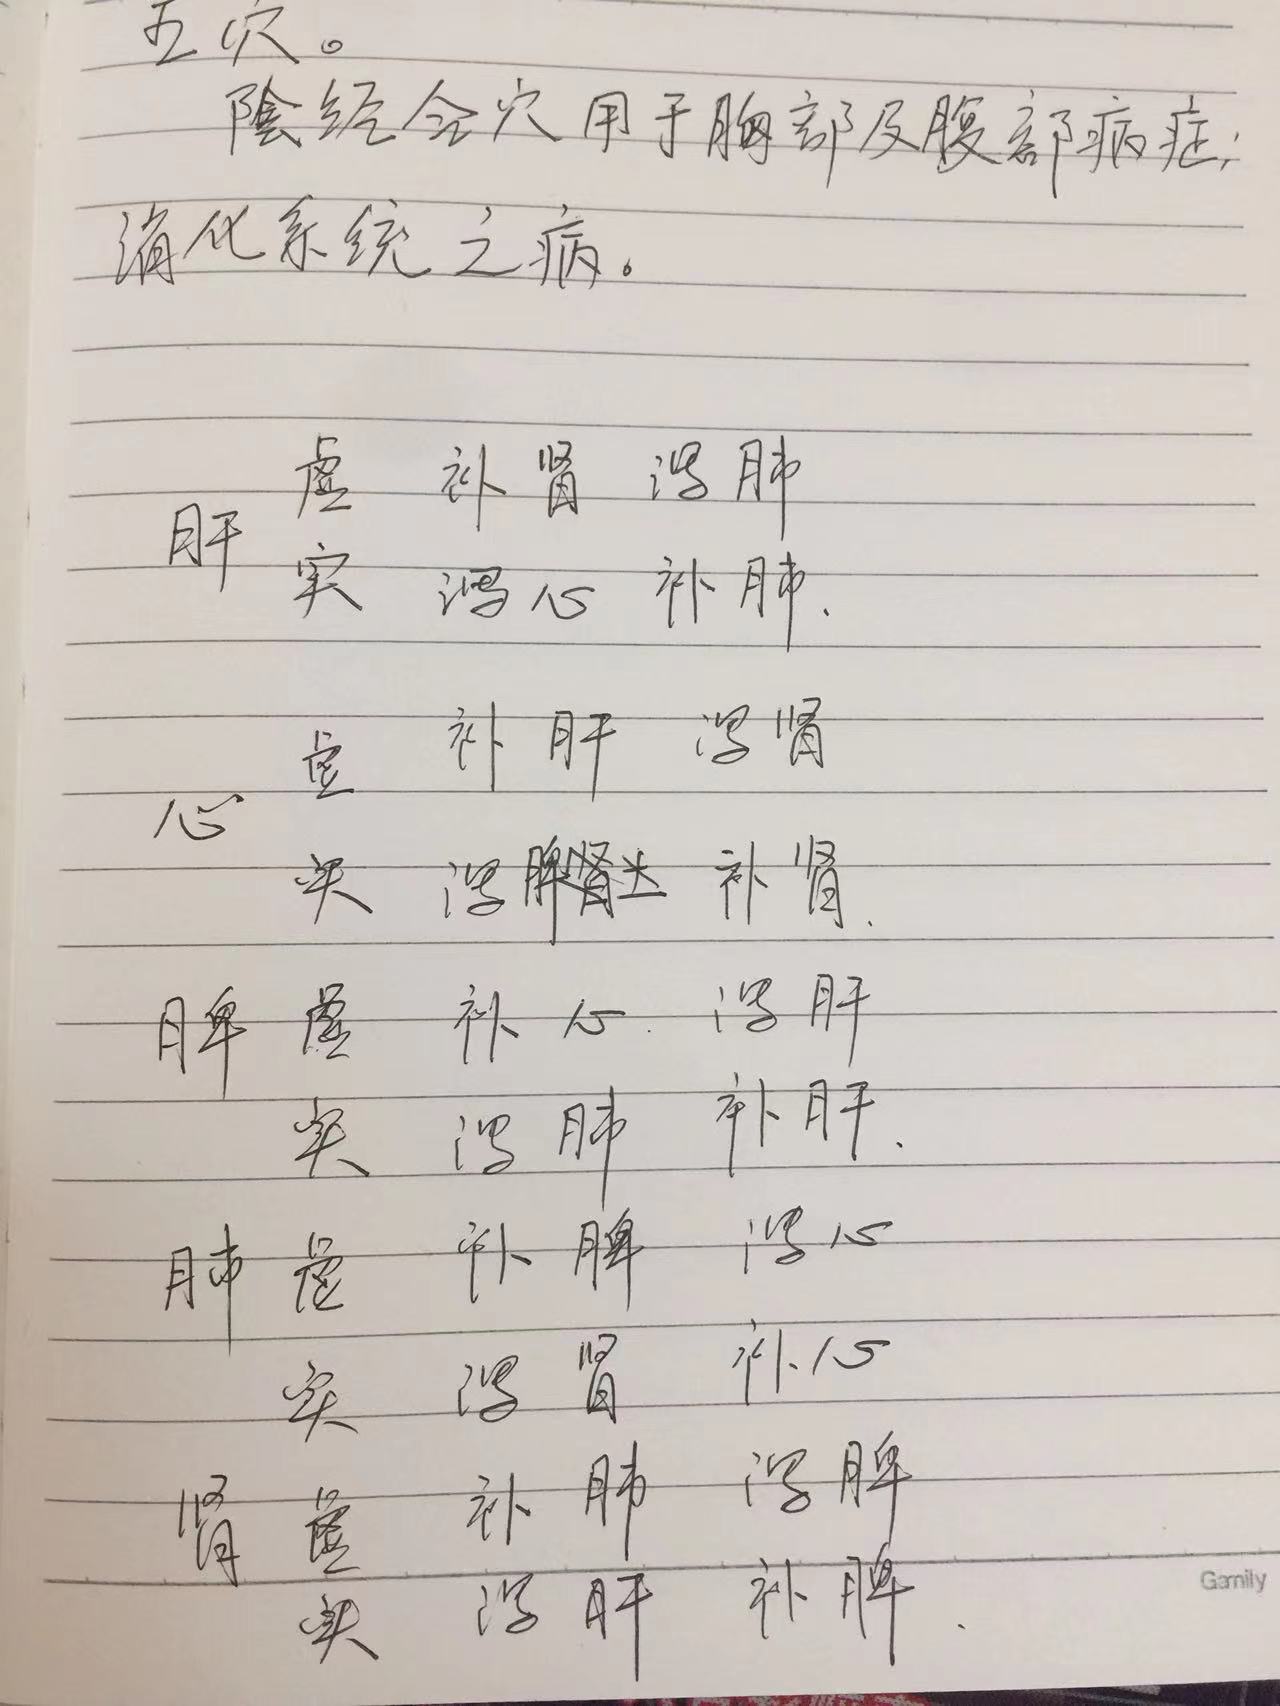 五穴。
陰经合穴用于胸部及腹部病症,
消化系统之病。
虚 补肾 泻肺
肝
实 泻心 补肺.
虚 补肝 泻肾
心
实 泻脾 补肾.
脾 虚 补心. 泻肝
实 泻肺 补肝.
肺 虚 补脾 泻心
实 泻肾 补心
肾 虚 补肺 泻脾
实 泻肝 补脾.
Gamily